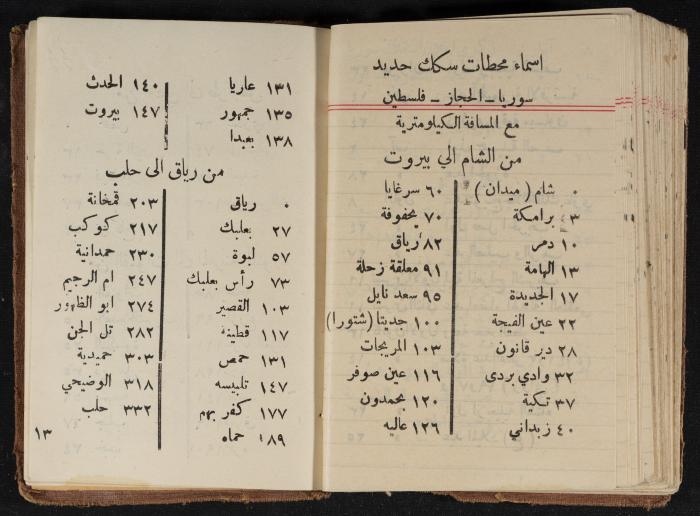 اسماء محطات سكك حديد
سوريا – الحجاز – فلسطين
مع المسافة الكيلومترية
من الشام الي بيروت
٠ شام (ميدان)
٣ برامكة
١٠ دمر
١٣ الهامة
١٧ الجديدة
٢٢ عين الفيجة
٢٨ دير قانون
٣٢ وادي بردى
٣٧ تكية
٤٠ زبداني
٦٠ سرغايا
٧٠ يحفوفة
٨٢ رياق
٩١ معلقة زحلة
٩٥ سعد نايل
١٠٠ جديتا (شتورا)
١٠٣ المريجات
١١٦ عين صوفر
١٢٠ بحمدون
١٢٦ عاليه
١٣١ عاريا
١٣٥ جمهور
١٣٨ بعبدا
١٤٠ الحدث
١٤٧ بيروت
من رياق الى حلب
٠ رياق
٢٧ بعلبك
٥٧ لبوة
٧٣ رأس بعلبك
١٠٣ القصير
١١٧ قطينة
١٣١ حمص
١٤٧ تلبيسه
١٧٧ كفر بهم
١٨٩ حماه
٢٠٣ قمخانة
٢١٧ كوكب
٢٣٠ حمدانية
٢٤٧ ام الرجيم
٢٧٤ ابو الظهور
٢٨٢ تل الجن
٣٠٣ حميدية
٣١٨ الوضيحي
٣٣٢ حلب
١٣